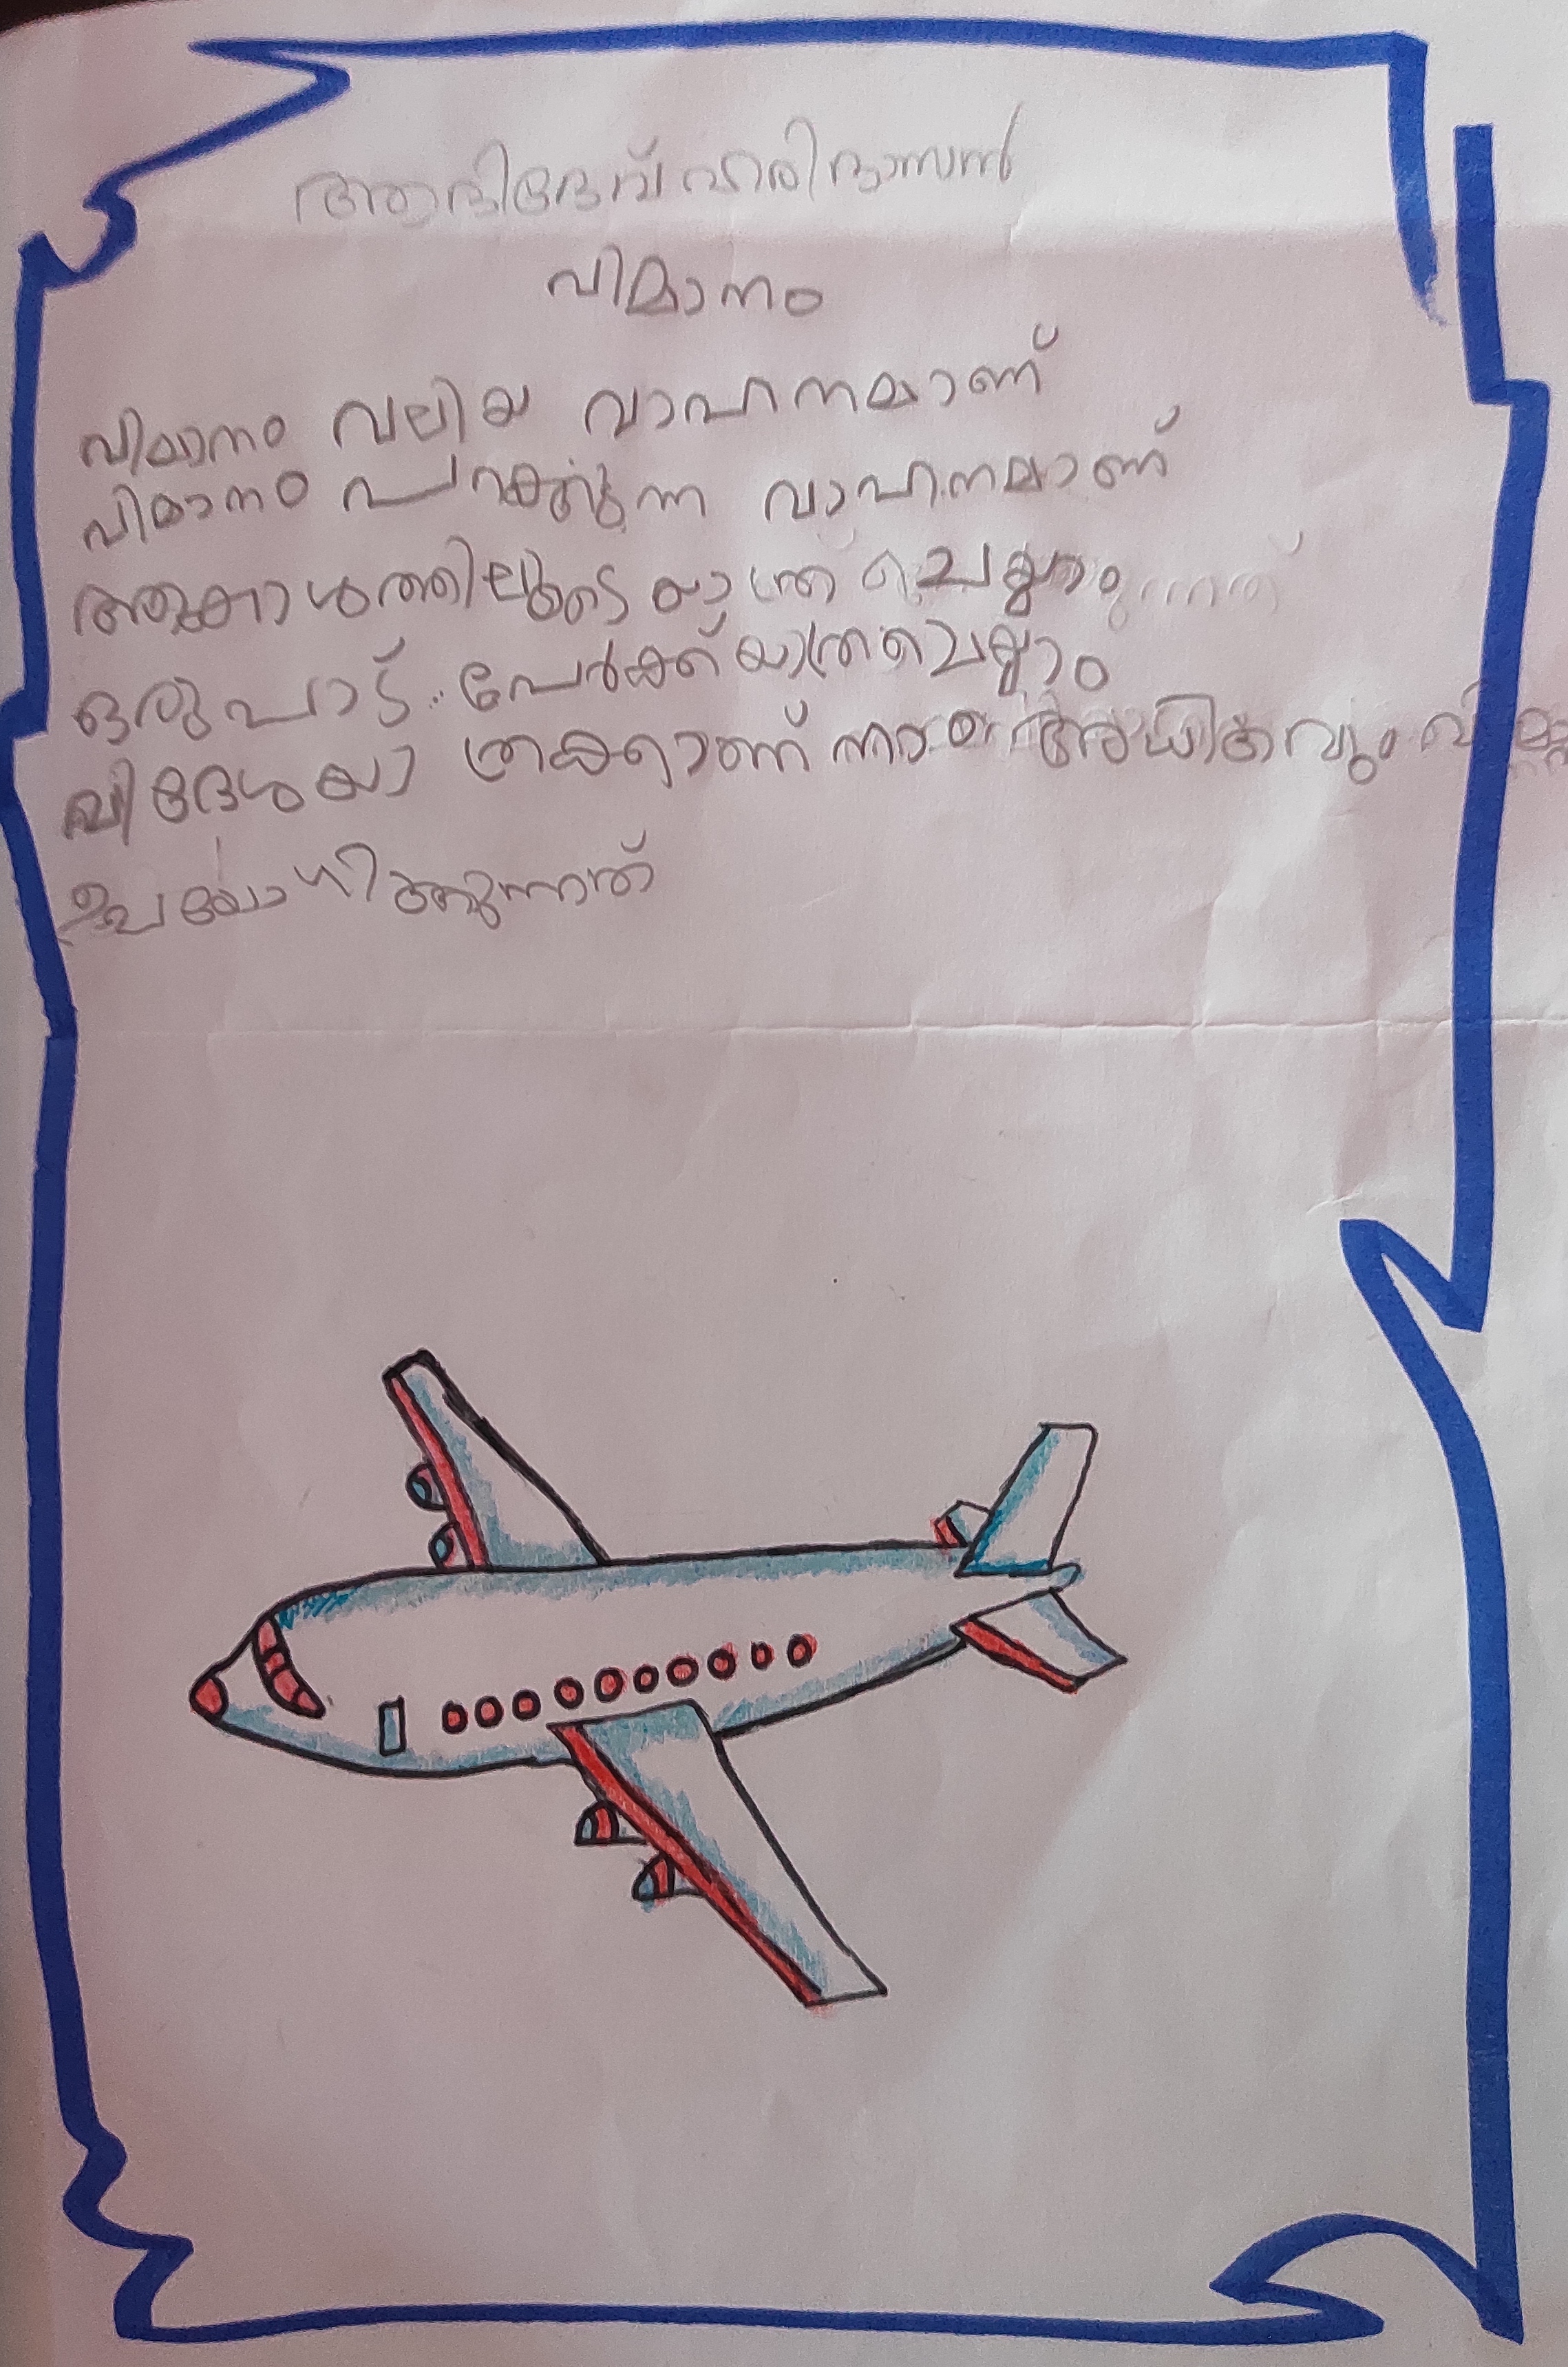 ആദിദേവ് ഹരിദാസൻ
വിമാനം
വിമാനം വലിയ വാഹനമാണ്
വിമാനം പറക്കുന്ന വാഹനമാണ്
ആകാശത്തിലൂടെ യാത്ര ചെയ്യാം
ഒരുപാട് പേർക്ക് യാത്ര ചെയ്യാം
വിദേശയാത്രക്കാണ് നാം അധികവും
ഉപയോഗിക്കുന്നത്